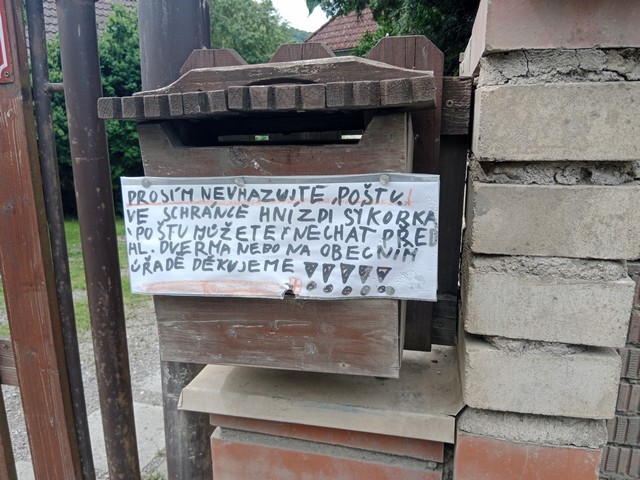 PROSÍM NEVHAZUJTE POŠTU.
VE SCHRÁNCE HNÍZDÍ SÝKORKA
POŠTU MŮŽETE NECHAT PŘED
HL. DVERMA NEBO NA OBECNÍM
ÚŘADĚ DĚKUJEME !!!!!